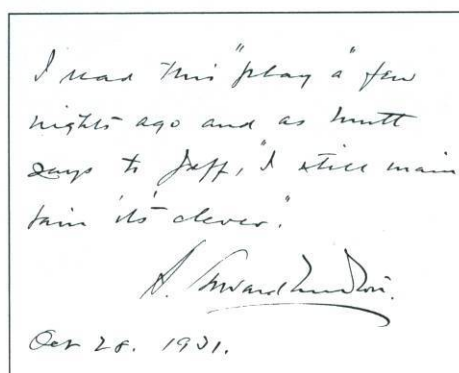 I read this "play" a few
nights ago and as Mutt
says to Jeff, "I still main
tain it's clever."
A. Edward Newton.
Oct 28. 1931.